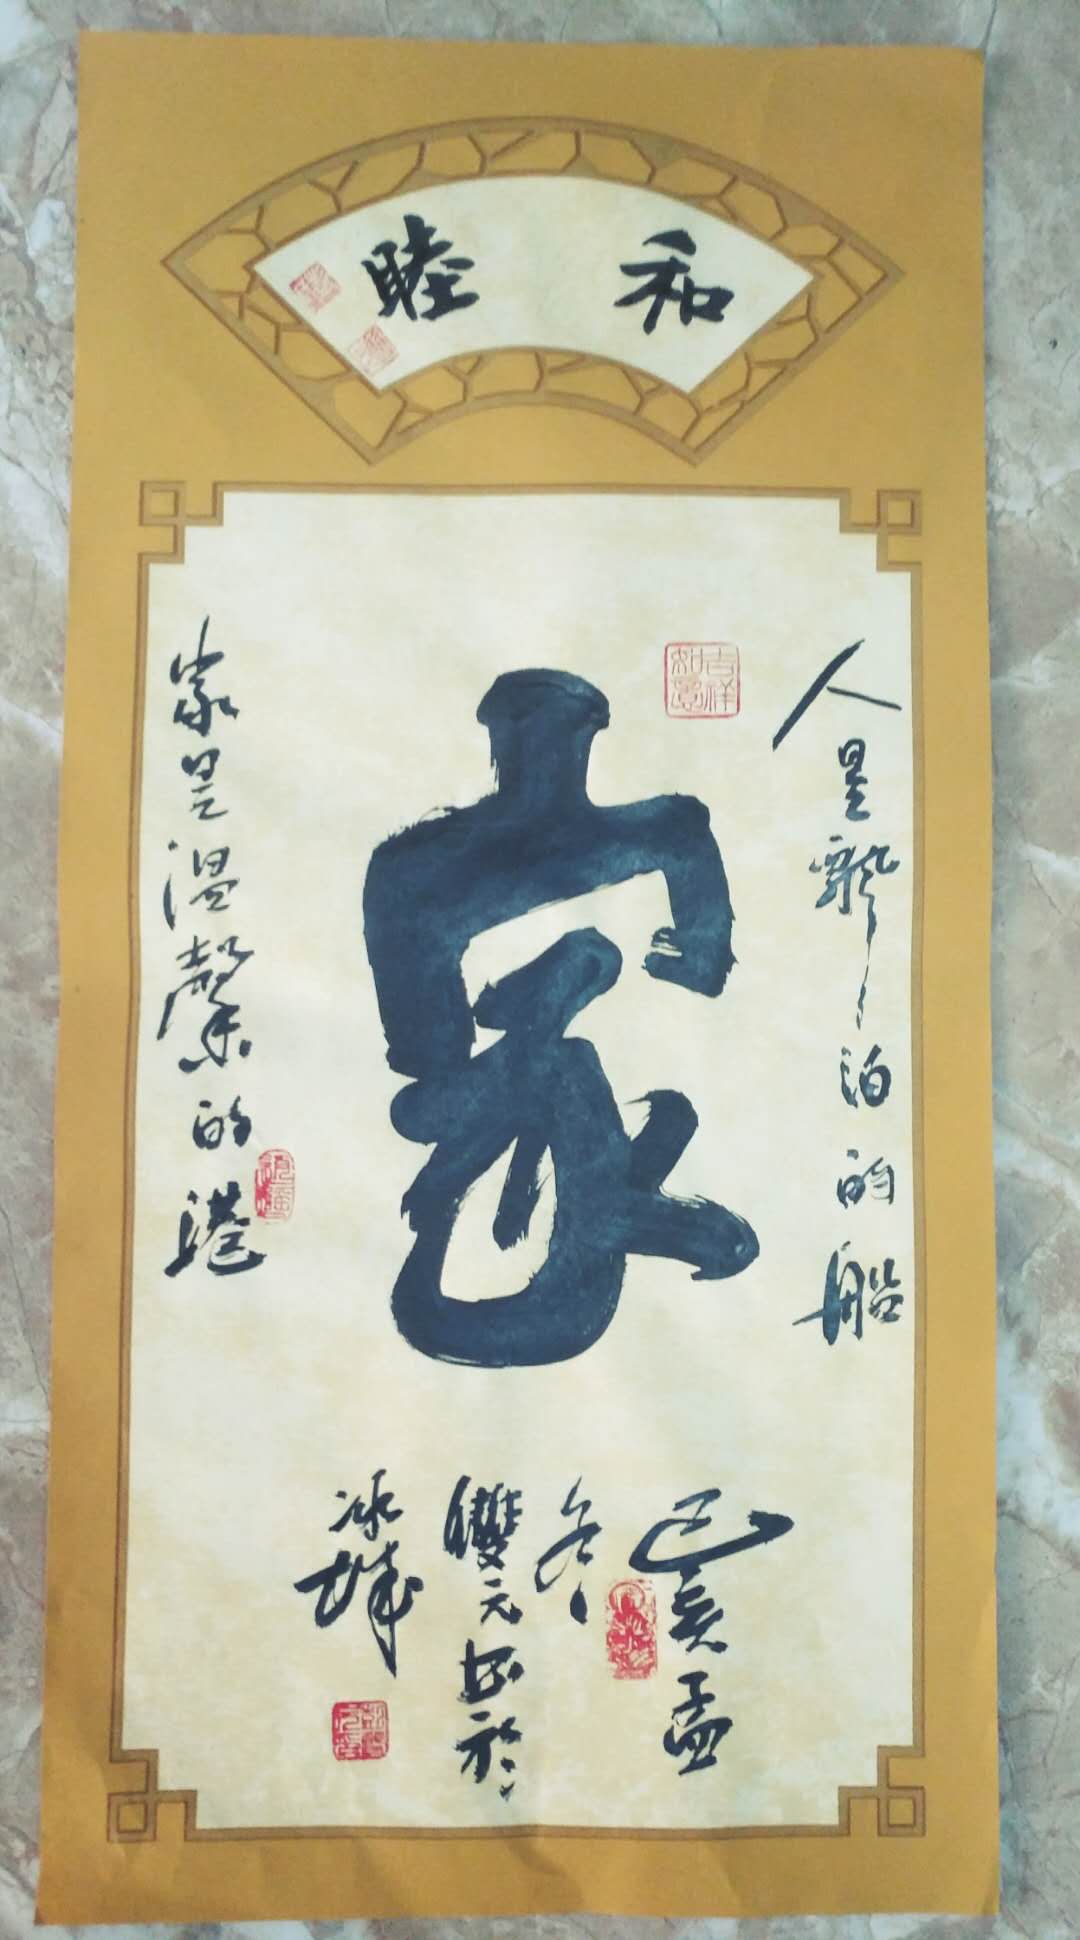 和睦
吉祥如意
人是飘泊的船
家
家是温馨的港
己亥孟
冬
雙元书於
冰城